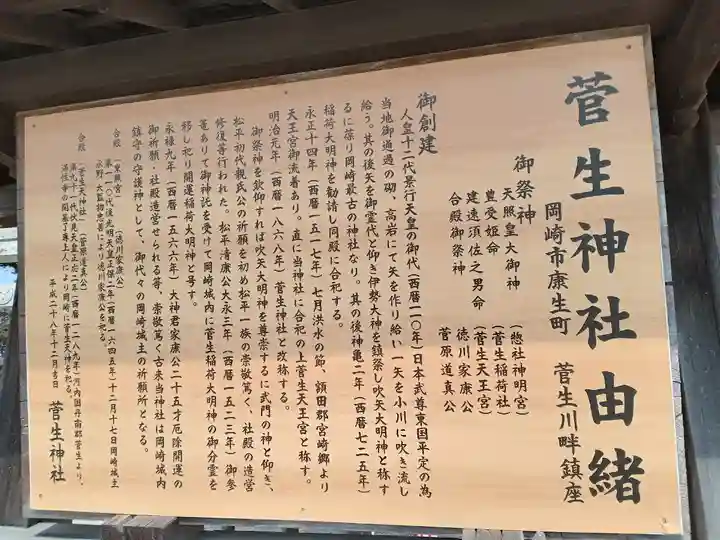 菅生神社由緒
岡崎市康生町 菅生川畔鎮座
御祭神
天照皇大御神 (惣社神明宮)
豊受姫命 (菅生稲荷社)
建速須佐之男命 (菅生天王宮)
合殿御祭神 徳川家康公
菅原道真公
御創建
人皇十二代景行天皇の御代(西暦一一〇年)日本武尊東国平定の為
当地御通過の砌、高岩にて矢を作り給い一矢を小川に吹き流し
給う。其の後矢を御霊代と仰ぎ伊勢大神を鎮祭し吹矢大明神と称す
るに葆り岡崎最古の神社なり。其の後神亀二年(西暦七二五年)
稲荷大明神を勧請し同殿に合祀する。
永正十四年(西暦一五一七年)七月洪水の節、額田郡宮崎郷より
天王宮御流着あり。直に当神社に合祀の上菅生天王宮と称す。
明治元年(西暦一八六八年)菅生神社と改称する。
御祭神を欽仰すれば吹矢大明神を尊崇するに武門の神と仰ぎ、
松平初代親氏公の祈願を初め松平一族の崇敬篤く、社殿の造営
修復等行われた。松平清康公大永三年(西暦一五二三年)御参
篭ありて御神託を受けて岡崎城内に菅生稲荷大明神の御分霊を
移し祀り開運稲荷大明神と号す。
永禄九年(西暦一五六六年)大神君家康公二十五才厄除開運の
御祈願、社殿造営せられる等、崇敬篤く古来当神社は岡崎城内
鎮守の守護神として、御代々の岡崎城主の祈願所となる。
合殿 (東照宮) (徳川家康公)
第一一〇代後光明天皇正保二年(西暦一六四五年)十二月十七日岡崎城主
水野大監物忠善より徳川家康公を祀る。
合殿 (菅生天神社) (菅原道真公)
第九十一代伏見天皇正応二年(西暦一二八九年)河内国丹南郡菅生より、
満性寺の開基了専上人により岡崎に菅生天神を祀る。
平成二十八年十二月吉日 菅生神社